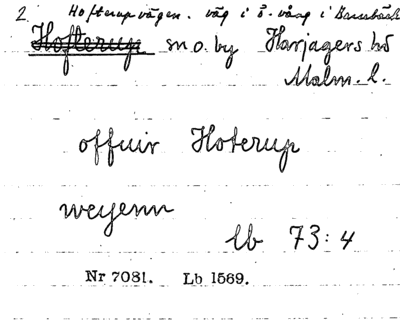 2. Hofterupvägen. väg i ö. vång i Barsebäck
Hofterup sn o. by Harjagers hd
Malm. l.
offuir Hoterup
weyenn
lb 73:4
Nr 7081. Lb 1569.